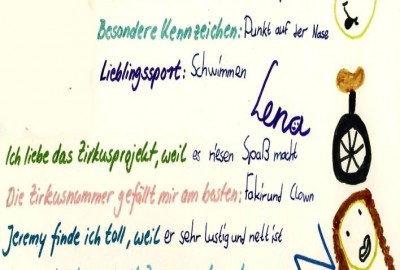 Besondere Kennzeichen: Punkt auf der Nase
Lieblingssport: Schwimmen
Lena
Ich liebe das Zirkusprojekt, weil es riesen Spaß macht
Die Zirkusnummer gefällt mir am besten: Fakir und Clown
Jeremy finde ich toll, weil er sehr lustig und nett ist